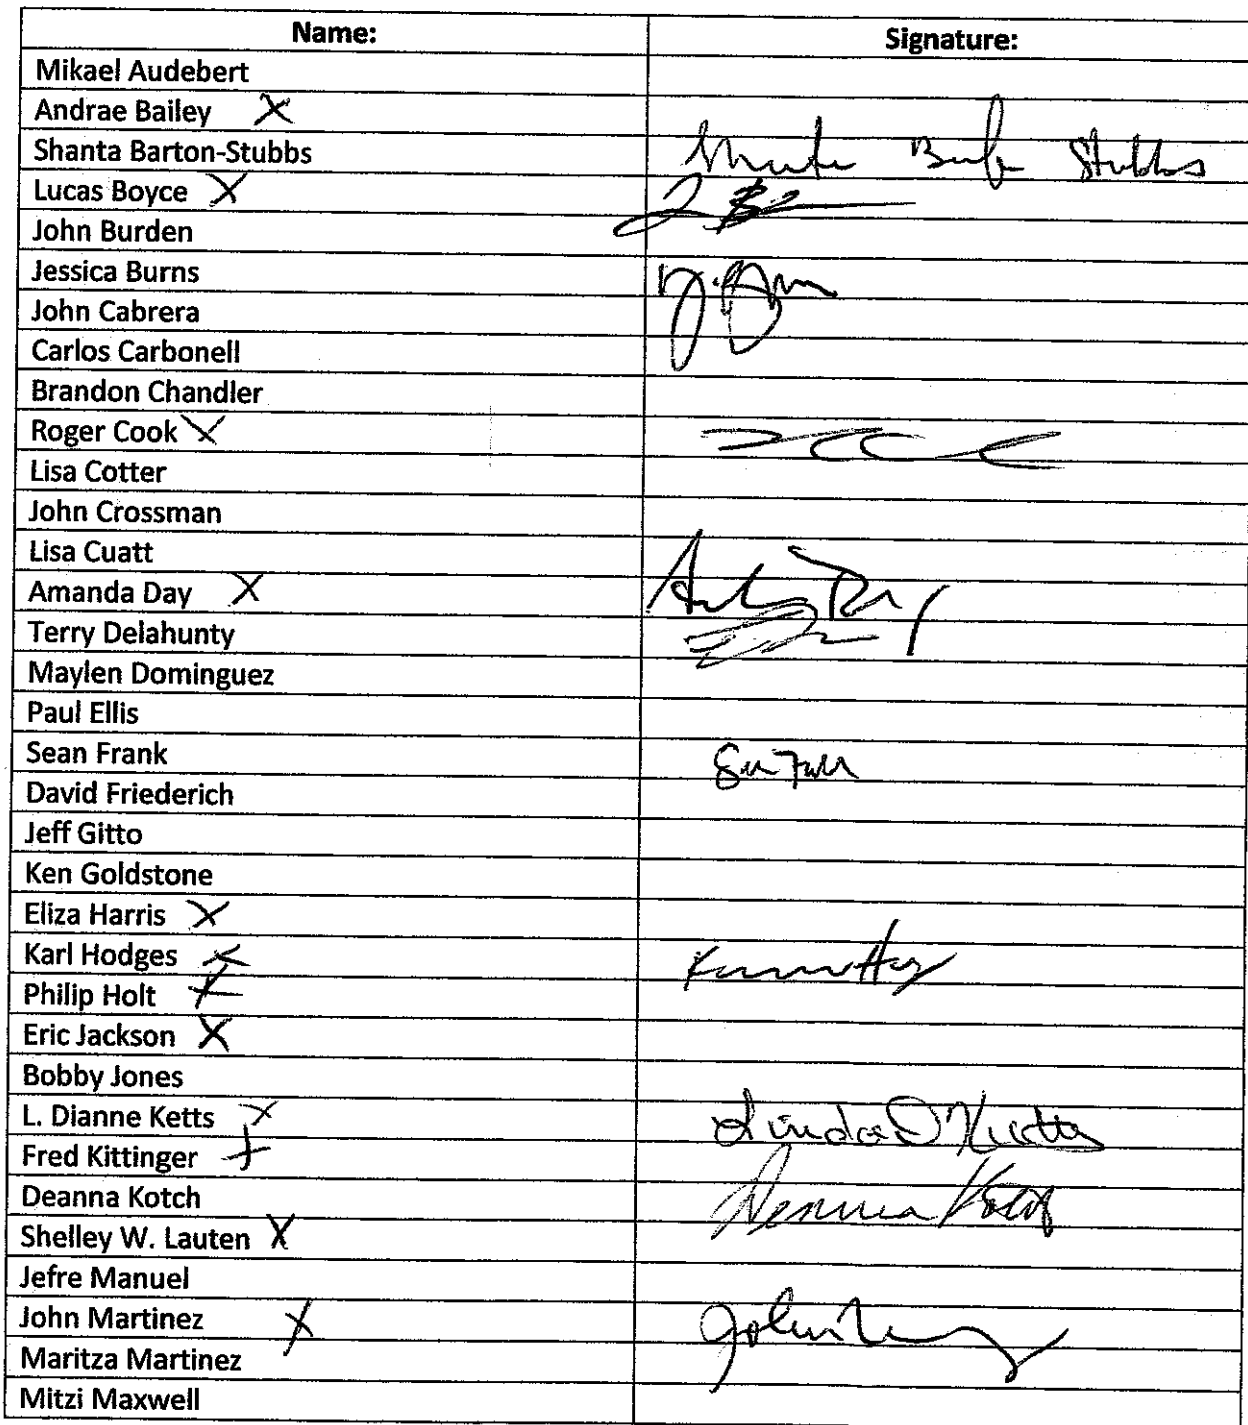 Name: Signature:
Mikael Audebert
Andrae Bailey X
Shanta Barton-Stubbs Stubbs
Lucas Boyce X
John Burden
Jessica Burns
John Cabrera
Carlos Carbonell
Brandon Chandler
Roger Cook X
Lisa Cotter
John Crossman
Lisa Cuatt
Amanda Day X
Terry Delahunty
Maylen Dominguez
Paul Ellis
Sean Frank
David Friederich
Jeff Gitto
Ken Goldstone
Eliza Harris X
Karl Hodges X
Philip Holt X
Eric Jackson X
Bobby Jones
L. Dianne Ketts X Linda D Ketts
Fred Kittinger X
Deanna Kotch Deanna Kotch
Shelley W. Lauten X
Jefre Manuel
John Martinez X John
Maritza Martinez
Mitzi Maxwell